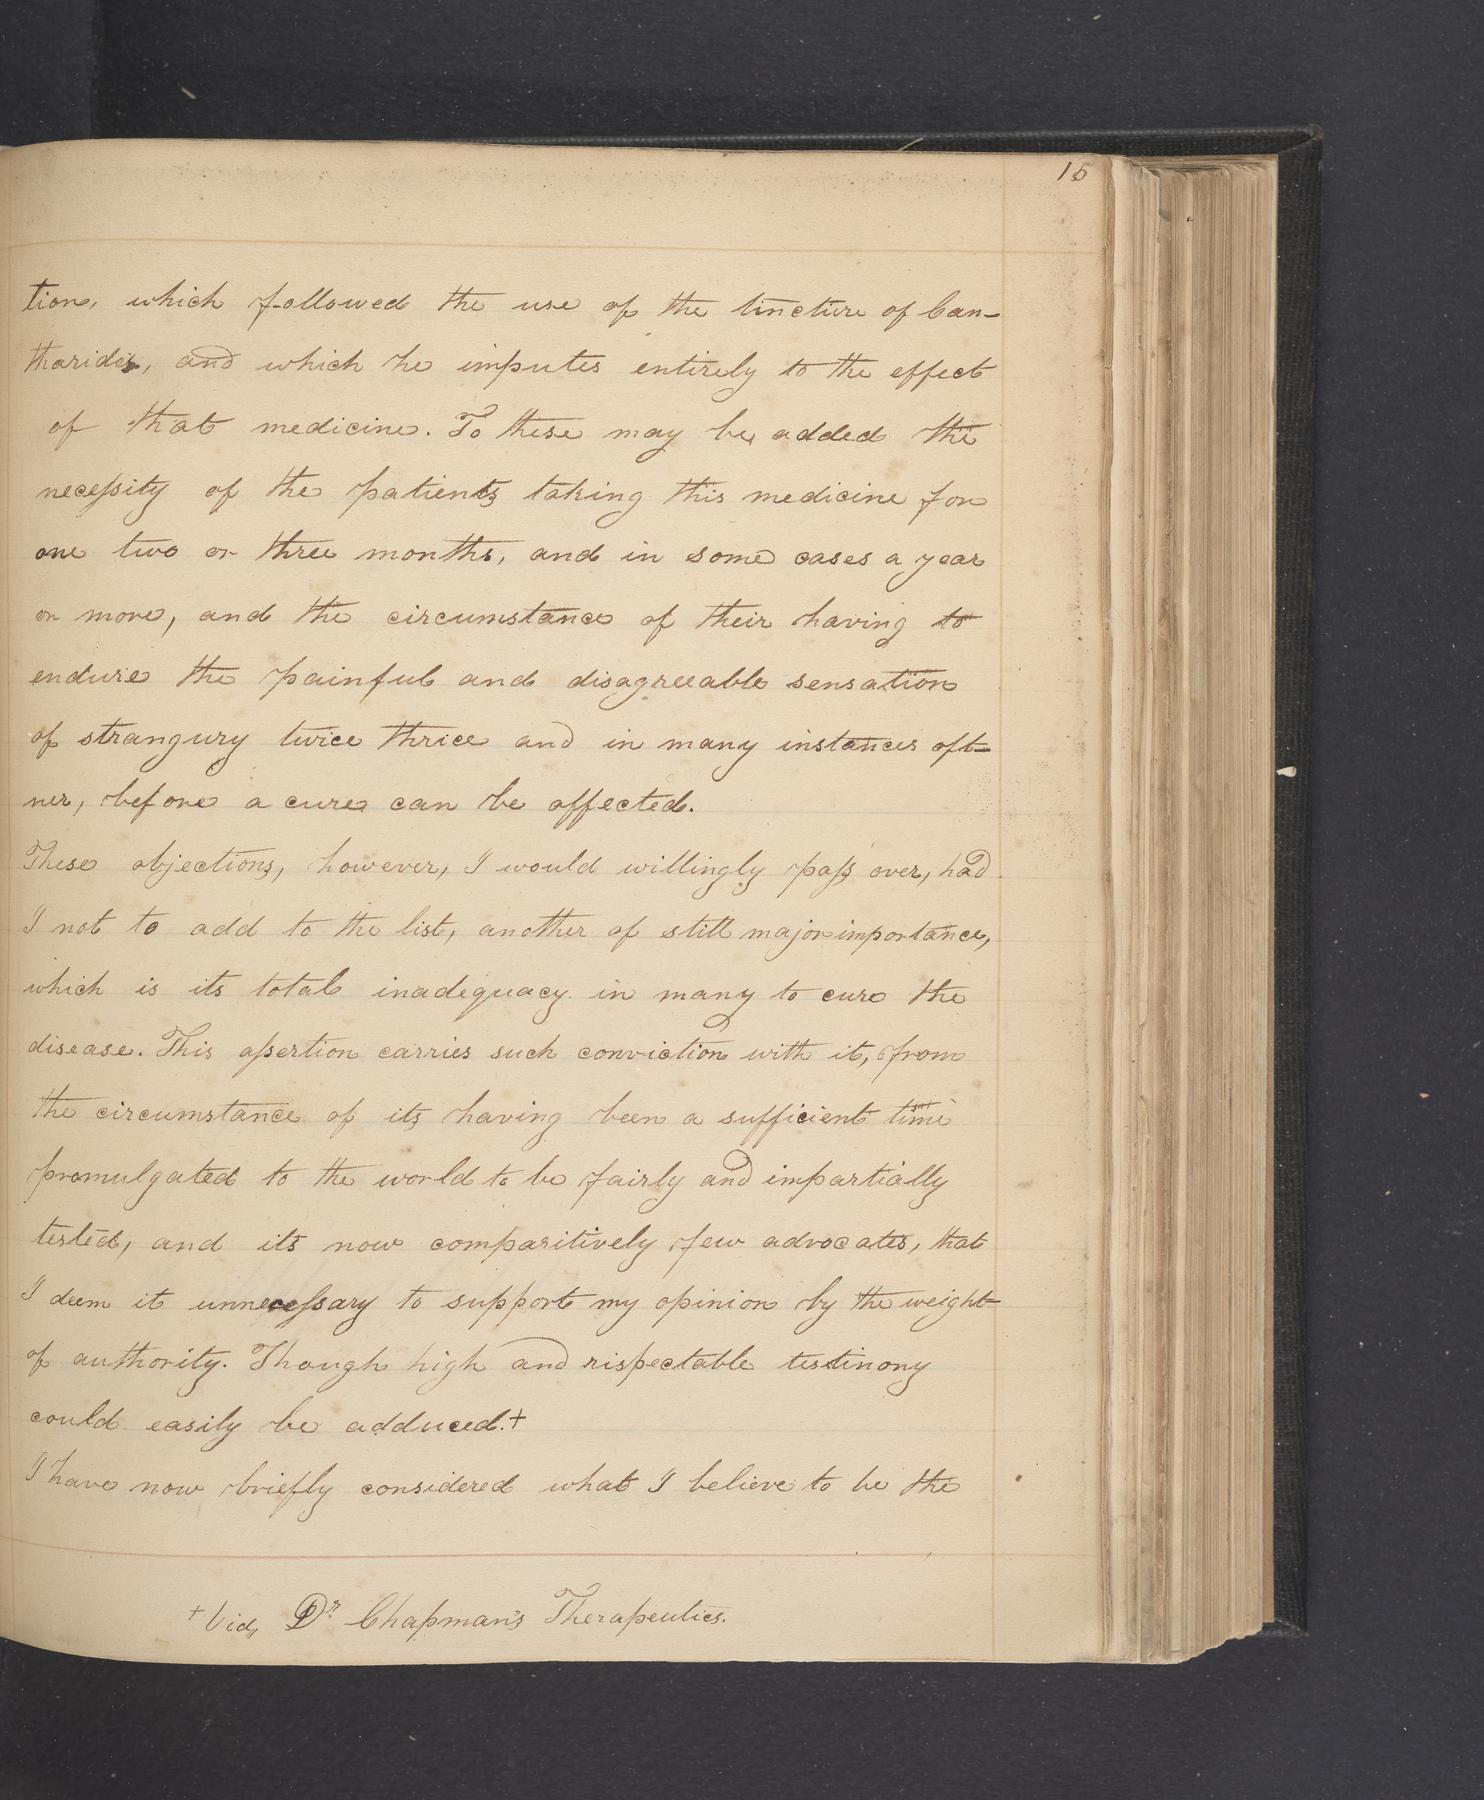 15
tion, which followed the use of the tincture of Can-
tharides, and which he imputes entirely to the effect
of that medicine. To these may be added the
necessity of the patients taking this medicine for
one two or three months, and in some cases a year
or more, and the circumstance of their having to
endure the painful and disagreeable sensation
of strangury twice thrice and in many instances oft-
ner, before a cure can be affected.
These objections, however, I would willingly pass over, had
I not to add to the list, another of still major importance,
which is its total inadequacy in many to cure the
disease. This assertion carries such conviction with it, from
the circumstance of its having been a sufficient time
promulgated to the world to be fairly and impartially
tested, and its now comparitively few advocates, that
I deem it unnecessary to support my opinion by the weight
of authority. Though high and rispectable testinony
could easily be adduced.+
I have now briefly considered what I believe to be the
+ Vid, Dr Chapman's Therapeutics.